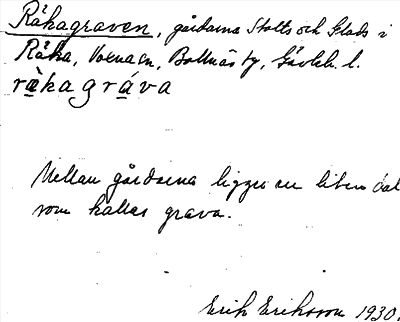 Råhagraven, gårdarna Stolts och Glads i
Råka, Voxnaen, Bollnäs tg, Gävleb. l.
råhagráva
Mellan gårdarna ligger en liten dal
som kallas grava.
Erik Eriksson 1930.